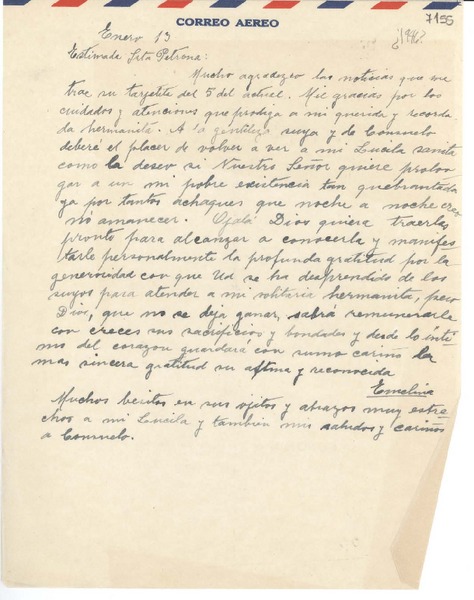 CORREO AEREO
7155
Enero 13
¿1946?
Estimada Srta Petrona:
Mucho agradezco las noticias que me
trae su tarjetita del 5 del actual. Mil gracias por los
cuidados y atenciones que prodiga a mi querida y recorda
da hermanita. A la gentileza suya y de Consuelo
deberé el placer de volver a ver a mi Lucila sanita
como la deseo si Nuestro Señor quiere prolon
gar a un mi pobre existencia tan quebrantada
ya por tantos achaques que noche a noche creo
no amanecer. Ojalá Dios quiera traerlas
pronto para alcanzar a conocerla y manifes
tarle personalmente la profunda gratitud por la
generosidad con que Ud se ha desprendido de los
suyos para atender a mi solitaria hermanita, pero
Dios, que no se deja ganar, sabrá remunerarla
con creces sus sacrificios y bondades y desde lo ínti
mo del corazon guardará con sumo cariño la
mas sincera gratitud su aftma y reconocida
Emelina
Muchos besitos en sus ojitos y abrazos muy estre
chos a mi Lucila y también mis saludos y cariños
a Consuelo.